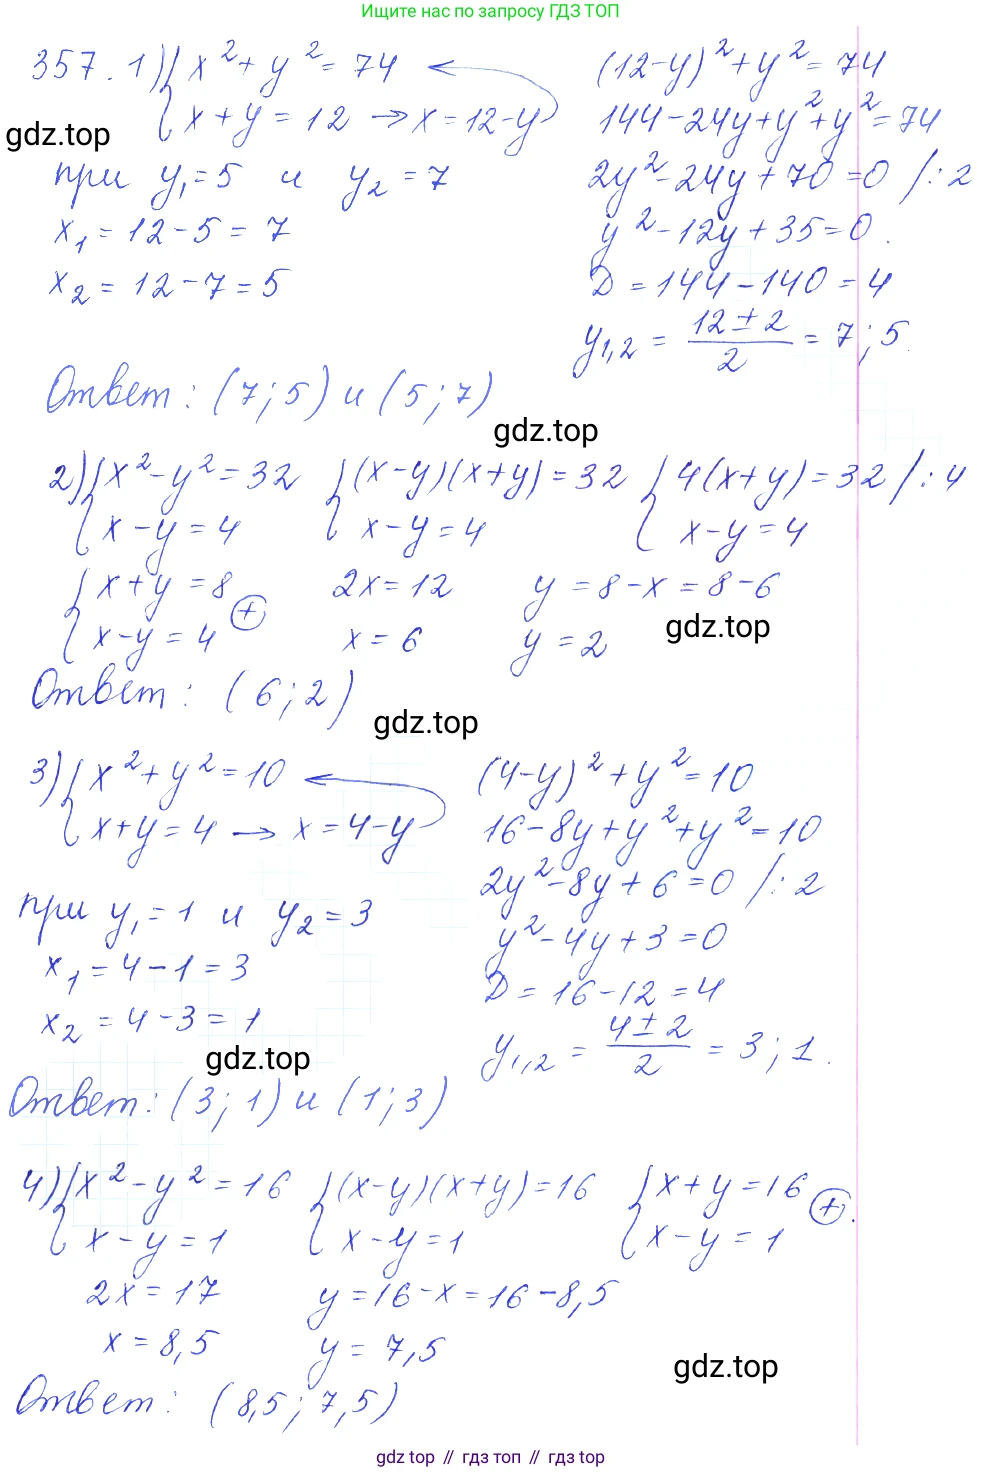 Ищите нас по запросу ГДЗ ТОП
357. 1) { x² + y² = 74
x + y = 12 → x = 12 - y
(12-y)² + y² = 74
144 - 24y + y² + y² = 74
2y² - 24y + 70 = 0 /:2
y² - 12y + 35 = 0.
D = 144 - 140 = 4
y₁,₂ = (12 ± 2)/2 = 7; 5.
gdz.top
при y₁ = 5 и y₂ = 7
x₁ = 12 - 5 = 7
x₂ = 12 - 7 = 5
Ответ: (7; 5) и (5; 7)
gdz.top
2) { x² - y² = 32 { (x-y)(x+y) = 32 { 4(x+y) = 32 /:4
x - y = 4 x - y = 4 x - y = 4
{ x + y = 8 2x = 12 y = 8 - x = 8 - 6
x - y = 4 (+) x = 6 y = 2
gdz.top
Ответ: (6; 2)
gdz.top
3) { x² + y² = 10
x + y = 4 → x = 4 - y
(4-y)² + y² = 10
16 - 8y + y² + y² = 10
2y² - 8y + 6 = 0 /:2
y² - 4y + 3 = 0
D = 16 - 12 = 4
y₁,₂ = (4 ± 2)/2 = 3; 1.
при y₁ = 1 и y₂ = 3
x₁ = 4 - 1 = 3
x₂ = 4 - 3 = 1
gdz.top
Ответ: (3; 1) и (1; 3)
4) { x² - y² = 16 { (x-y)(x+y) = 16 { x + y = 16 (+).
x - y = 1 x - y = 1 x - y = 1
2x = 17 y = 16 - x = 16 - 8,5
x = 8,5 y = 7,5
gdz.top
Ответ: (8,5; 7,5)
gdz top // гдз топ // gdz top